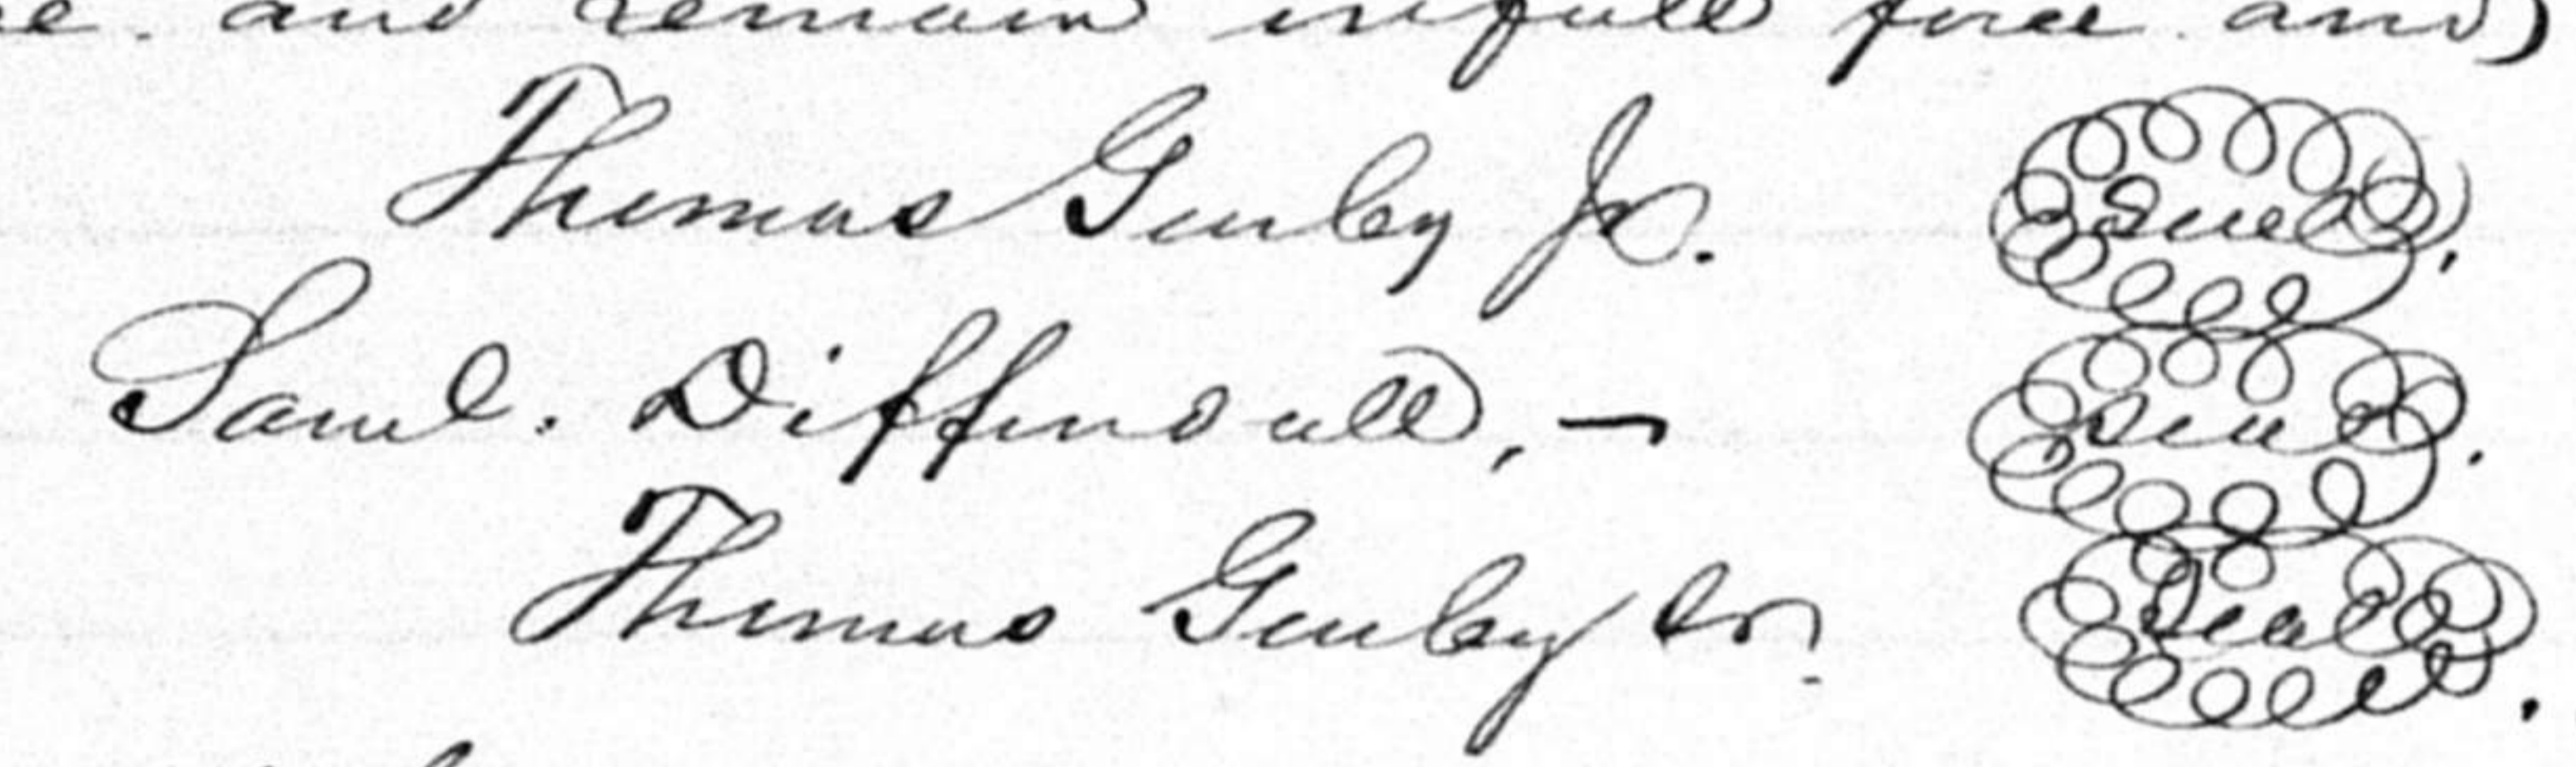 and remain in full force and
Thomas Gurley Jr. Seal
Saml. Diffendall, — Seal
Thomas Gurley Sr. Seal